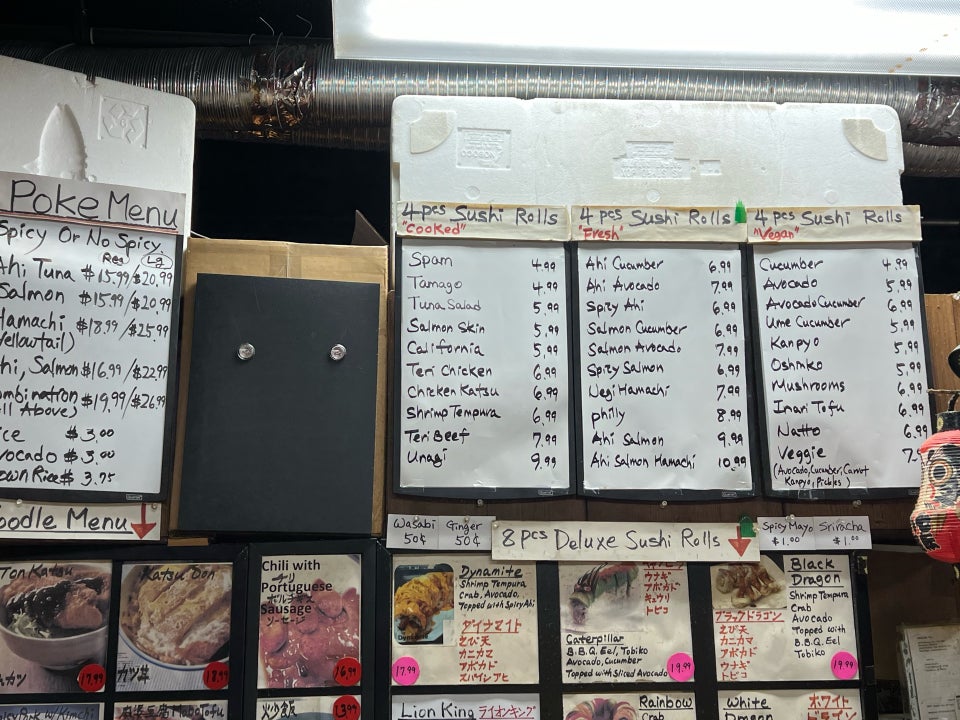 Poke Menu
Spicy Or No Spicy
Reg Lg
Ahi Tuna $15.99/$20.99
Salmon $15.99/$20.99
Hamachi $18.99/$25.99
(Yellowtail)
Ahi, Salmon $16.99/$22.99
ombination $19.99/$26.99
ll Above)
ice $3.00
vocado $3.00
own Rice $3.75
oodle Menu
4 pcs Sushi Rolls
"Cooked"
Spam 4.99
Tamago 4.99
Tuna Salad 5.99
Salmon Skin 5.99
California 5.99
Teri Chicken 6.99
Chicken Katsu 6.99
Shrimp Tempura 6.99
Teri Beef 7.99
Unagi 9.99
4 pcs Sushi Rolls
"Fresh"
Ahi Cucumber 6.99
Ahi Avocado 7.99
Spicy Ahi 6.99
Salmon Cucumber 6.99
Salmon Avocado 7.99
Spicy Salmon 6.99
Negi Hamachi 7.99
philly 8.99
Ahi Salmon 9.99
Ahi Salmon Hamachi 10.99
4 pcs Sushi Rolls
"Vegan"
Cucumber 4.99
Avocado 5.99
Avocado Cucumber 6.99
Ume Cucumber 5.99
Kanpyo 5.99
Oshinko 5.99
Mushrooms 6.99
Inari Tofu 6.99
Natto 6.99
Veggie 7.
(Avocado, Cucumber, Carrot
Kanpyo, Pickles)
Wasabi 50¢
Ginger 50¢
8 pcs Deluxe Sushi Rolls
Spicy Mayo $1.00
Sriracha $1.00
Ton Katsu
カツ
17.99
Katsu Don
カツ丼
18.99
Chili with
チリ
Portuguese
ポルチギス
Sausage
ソーセージ
16.99
Dynamite
Shrimp Tempura
Crab, Avocado,
Topped with Spicy Ahi
Dynamite
ダイナマイト
えび天
カニカマ
アボカド
スパイシアヒ
17.99
ウナギ
アボカド
キュウリ
トビコ
Caterpillar
B.B.Q. Eel, Tobiko
Avocado, Cucumber
Topped with Sliced Avocado
19.99
Black
Dragon
Shrimp Tempura
Crab
Avocado
Topped with
B.B.Q. Eel,
Tobiko
ブラックドラゴン
えび天
カニカマ
アボカド
ウナギ
トビコ
19.99
w/Kimchi
麻婆豆腐 Mabo Tofu
炒飯
13.99
Lion King ライオンキング
Rainbow
Crab
White
Dragon
ホワイト
ドラゴン